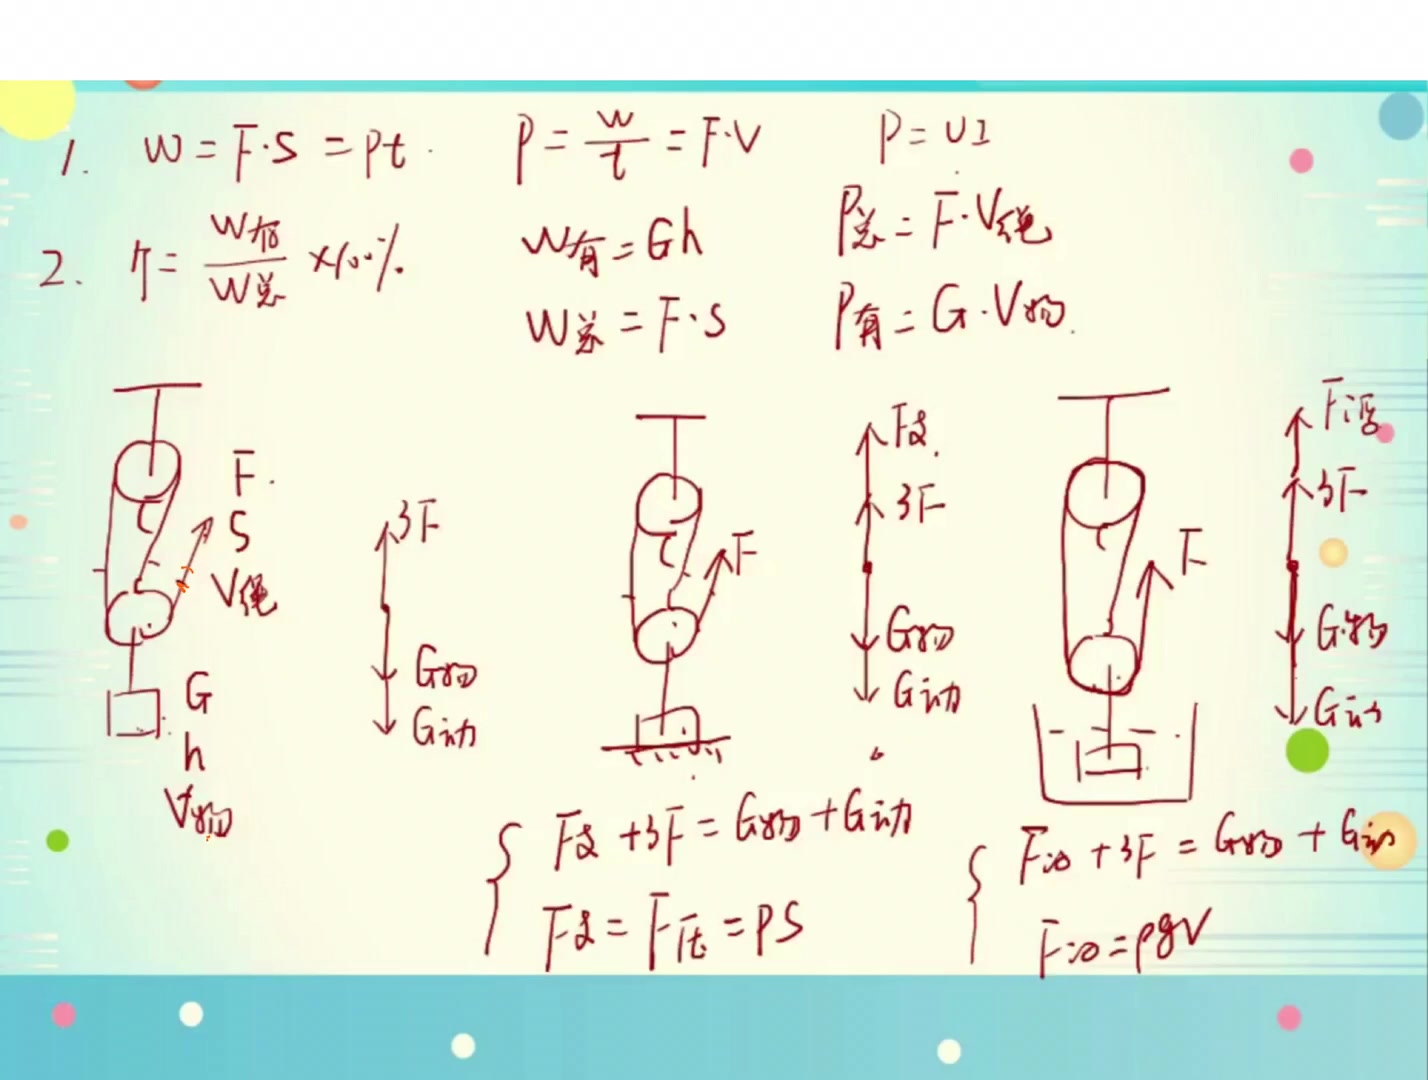 1. W = F·S = Pt. P = W/t = F·V P = UI
2. η = W有/W总 ×100% W有 = Gh P总 = F·V绳
W总 = F·S P有 = G·V物
F
S
V绳
G
h
V物
3F
G物
G动
F
F支
3F
G物
G动
F支 + 3F = G物 + G动
F支 = F压 = PS
F
F浮
3F
G物
G动
F浮 + 3F = G物 + G动
F浮 = ρgV